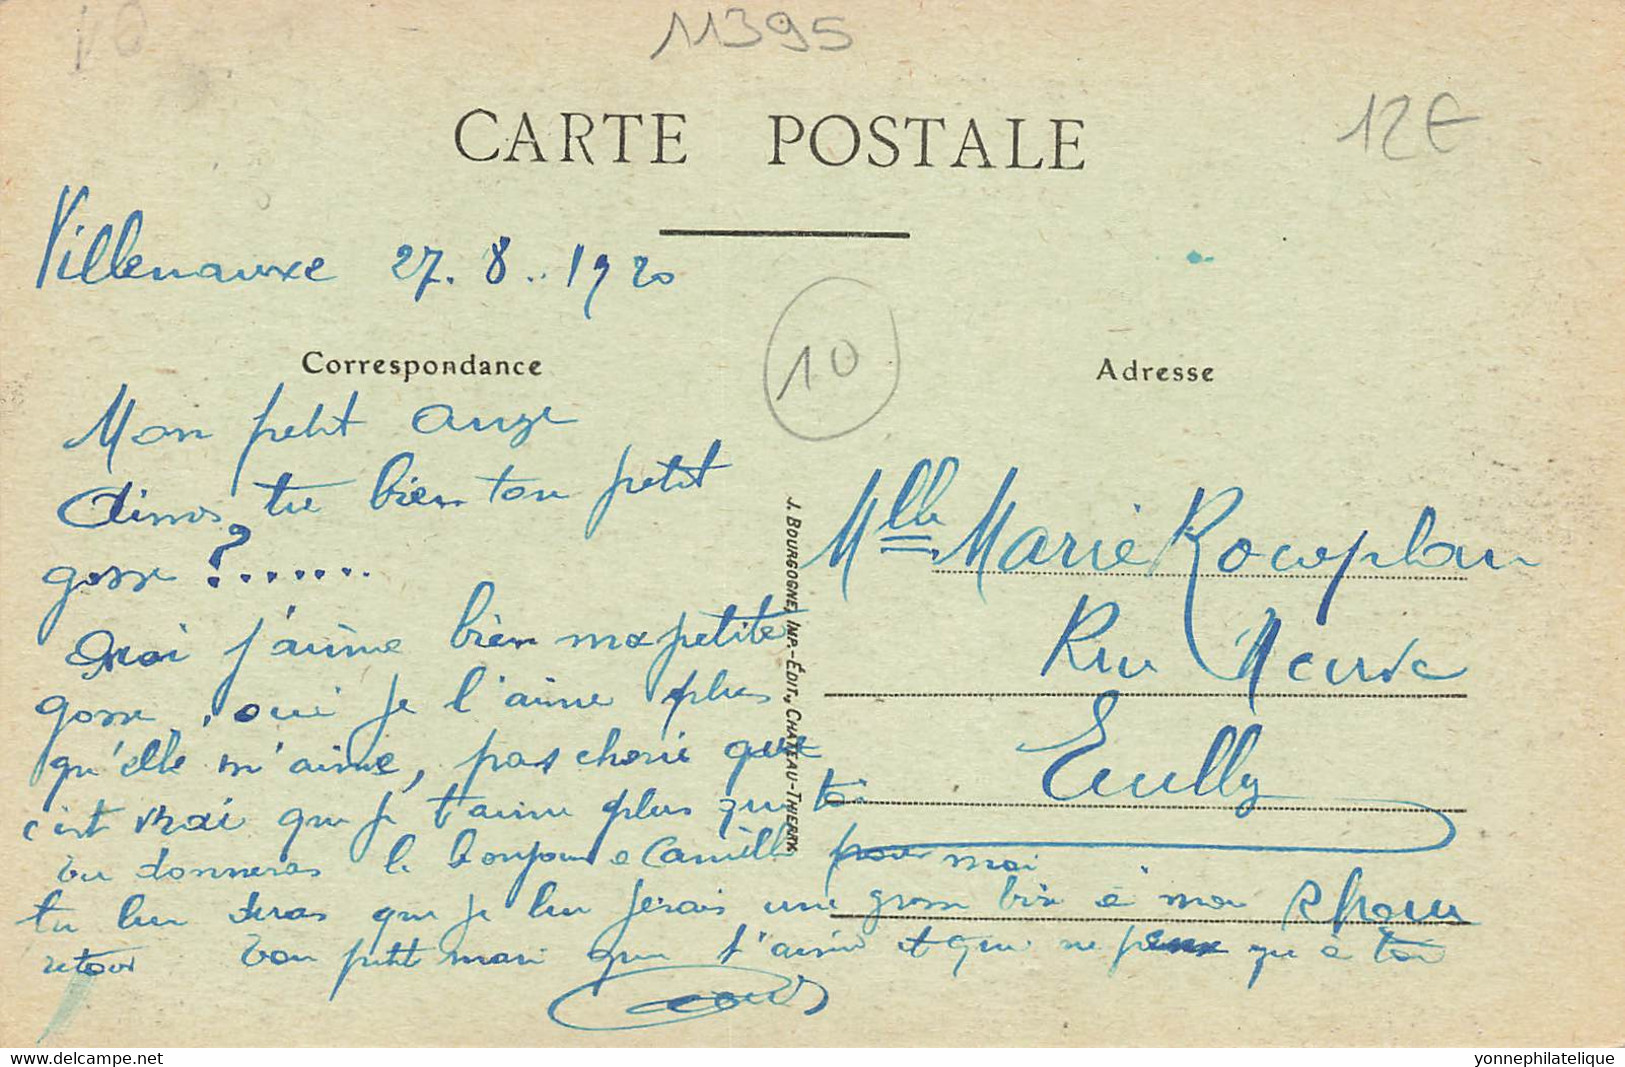 11395
12€
CARTE POSTALE
Villenauxe 27.8..1920
10
Correspondance
Adresse
Mon petit ange
Aimes tu bien ton petit
gosse ?.......
Moi j'aime bien ma petite
gosse, oui je l'aime plus
qu'elle m'aime, pas cherie que
c'est vrai que je t'aime plus que toi
tu donneras le bonjour a Camille pour moi
tu lui diras que je lui ferais une grosse bise à mon
retour ton petit mari qui t'aime et qui ne pense qu'à toi
Louis
Mlle Marie Rocoplan
Rue Neuve
Ecully
Rhone
J. BOURGOGNE, IMP.-ÉDIT., CHATEAU-THIERRY.
www.delcampe.net
yonnephilatelique